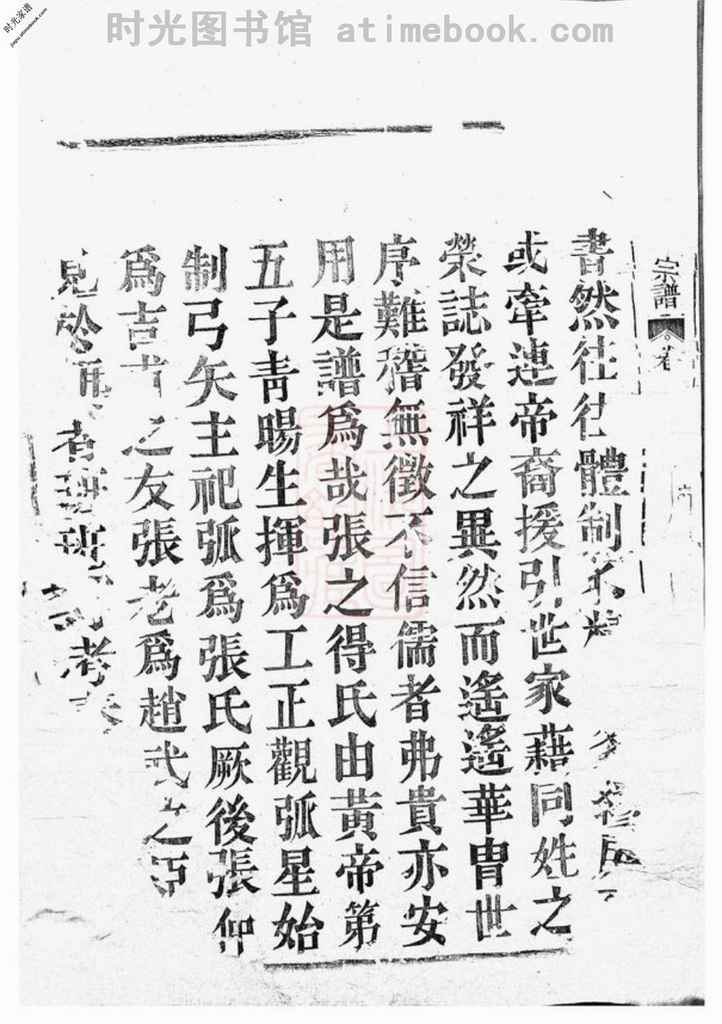 时光图书馆 atimebook.com
时光家谱
jiapu.atimebook.com
宗譜
書然往往體制不
或牽連帝裔援引世家藉同姓之
榮誌發祥之異然而遙遙華冑世
序難稽無徵不信儒者弗貴亦安
用是譜爲哉張之得氏由黃帝第
五子靑暘生揮爲工正觀弧星始
制弓矢主祀弧爲張氏厥後張仲
爲吉甫之友張老爲趙武之臣
見於
者班班可考